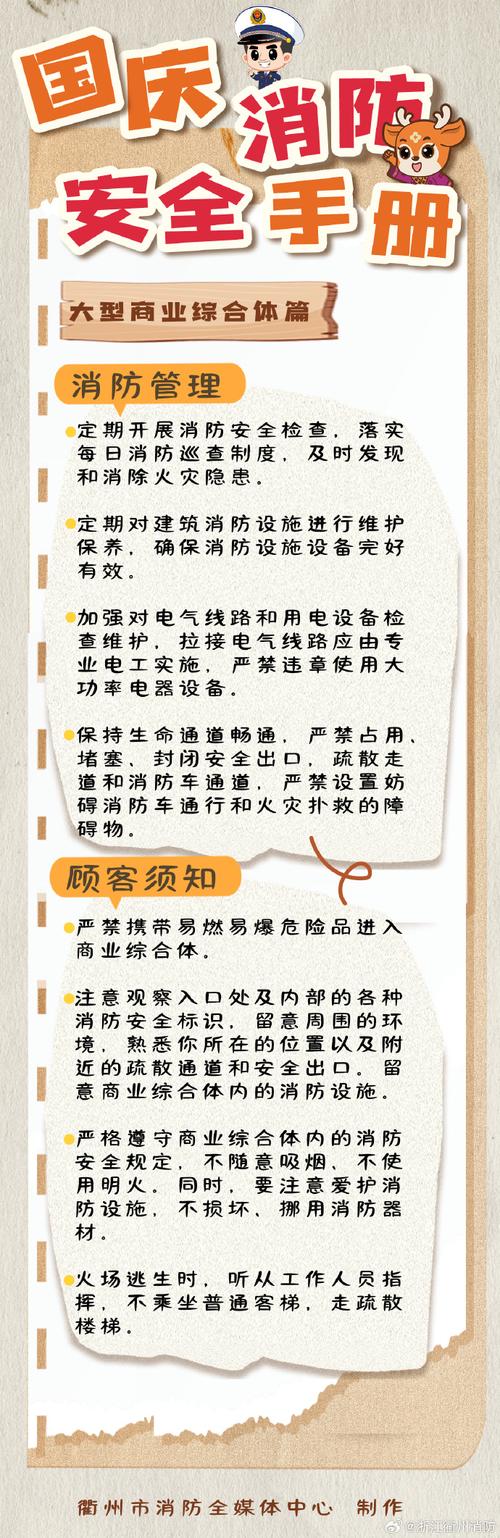 国庆消防
安全手册
大型商业综合体篇
消防管理
定期开展消防安全检查，落实
每日消防巡查制度，及时发现
和消除火灾隐患。
定期对建筑消防设施进行维护
保养，确保消防设施设备完好
有效。
加强对电气线路和用电设备检
查维护，拉接电气线路应由专
业电工实施，严禁违章使用大
功率电器设备。
保持生命通道畅通，严禁占用、
堵塞、封闭安全出口，疏散走
道和消防车通道，严禁设置妨
碍消防车通行和火灾扑救的障
碍物。
顾客须知
严禁携带易燃易爆危险品进入
商业综合体。
注意观察入口处及内部的各种
消防安全标识，留意周围的环
境，熟悉你所在的位置以及附
近的疏散通道和安全出口。留
意商业综合体内的消防设施。
严格遵守商业综合体内的消防
安全规定，不随意吸烟、不使
用明火。同时，要注意爱护消
防设施，不损坏、挪用消防器
材。
火场逃生时，听从工作人员指
挥，不乘坐普通客梯，走疏散
楼梯。
衢州市消防全媒体中心 制作
@浙江衢州消防